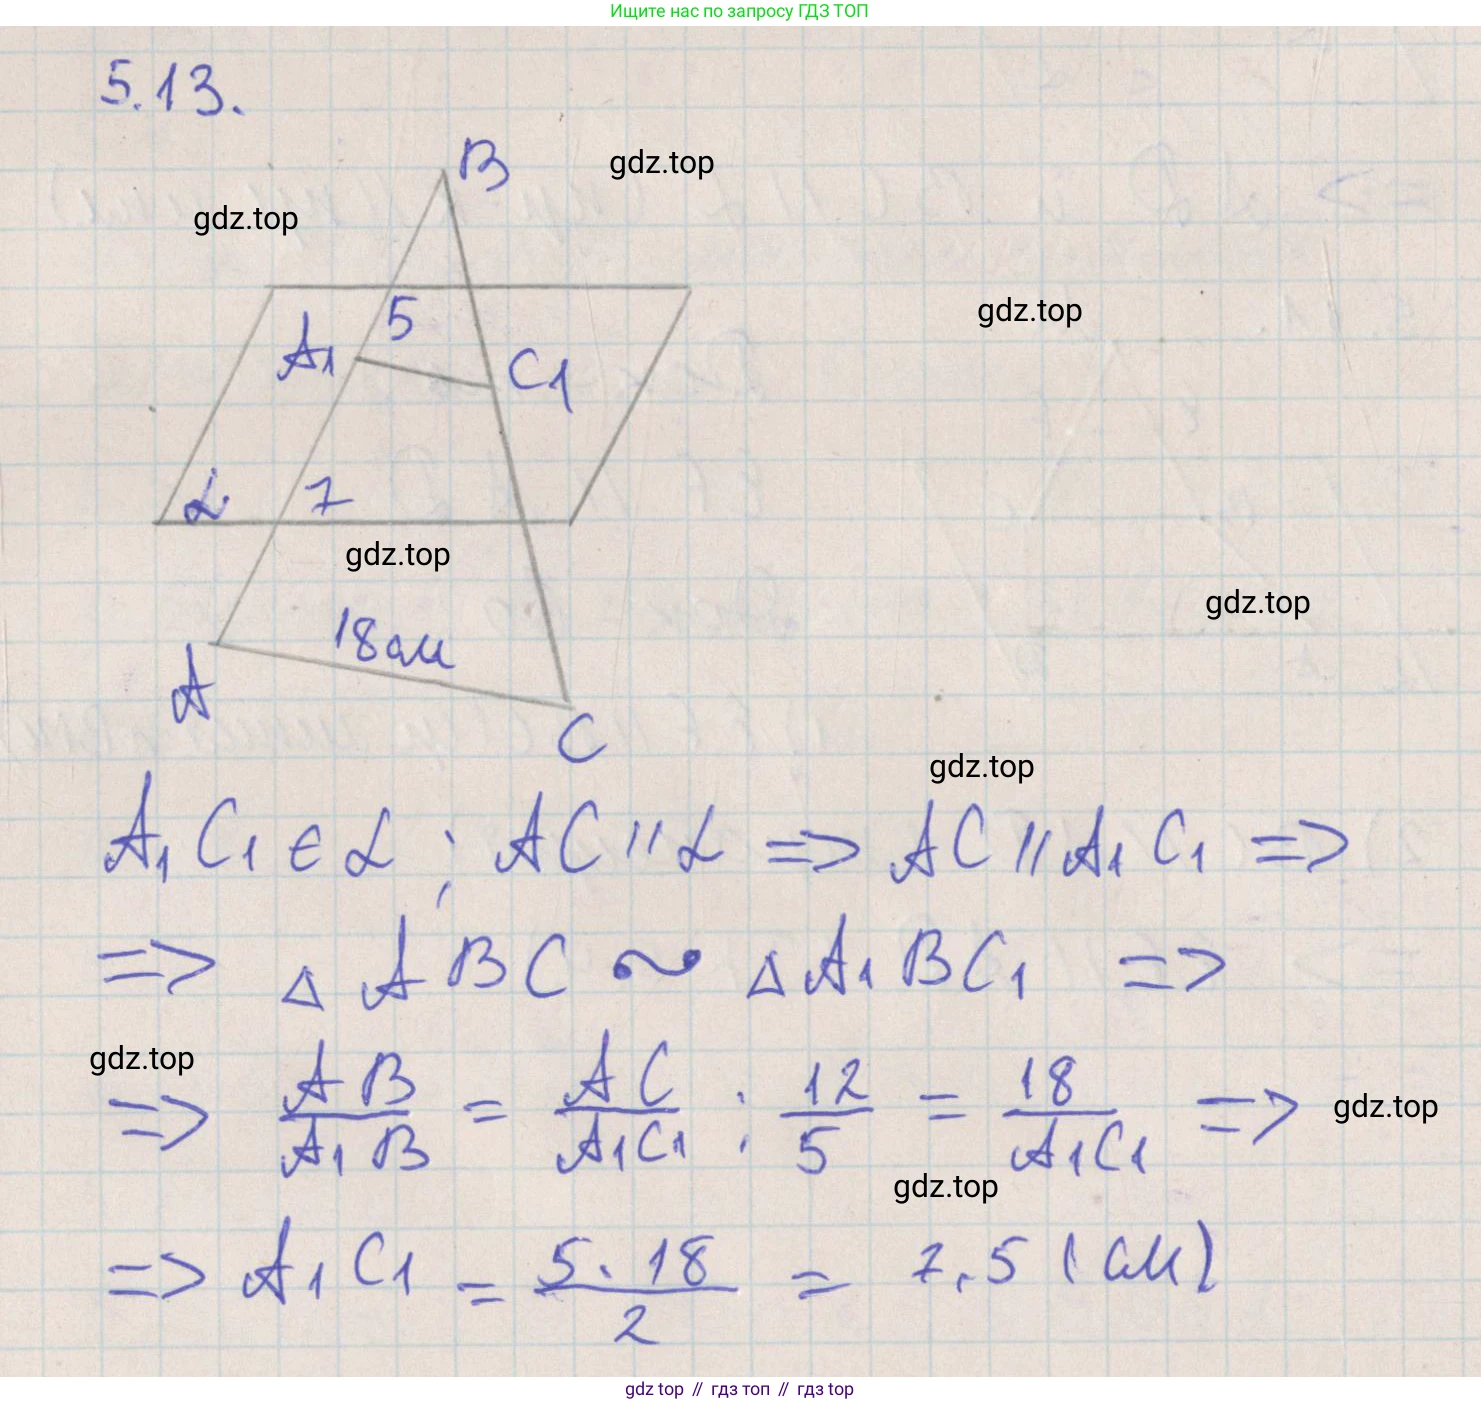 Ищите нас по запросу ГДЗ ТОП
5.13.
B
gdz.top
gdz.top
gdz.top
5
A₁
C₁
α
7
gdz.top
gdz.top
18 см
A
C
gdz.top
A₁C₁ ∈ α ; AC || α => AC || A₁C₁ =>
=> △ ABC ∼ △ A₁BC₁ =>
gdz.top
=> AB/A₁B = AC/A₁C₁ ; 12/5 = 18/A₁C₁ =>
gdz.top
gdz.top
=> A₁C₁ = 5·18/2 = 7,5 (см)
gdz top // гдз топ // гдз top